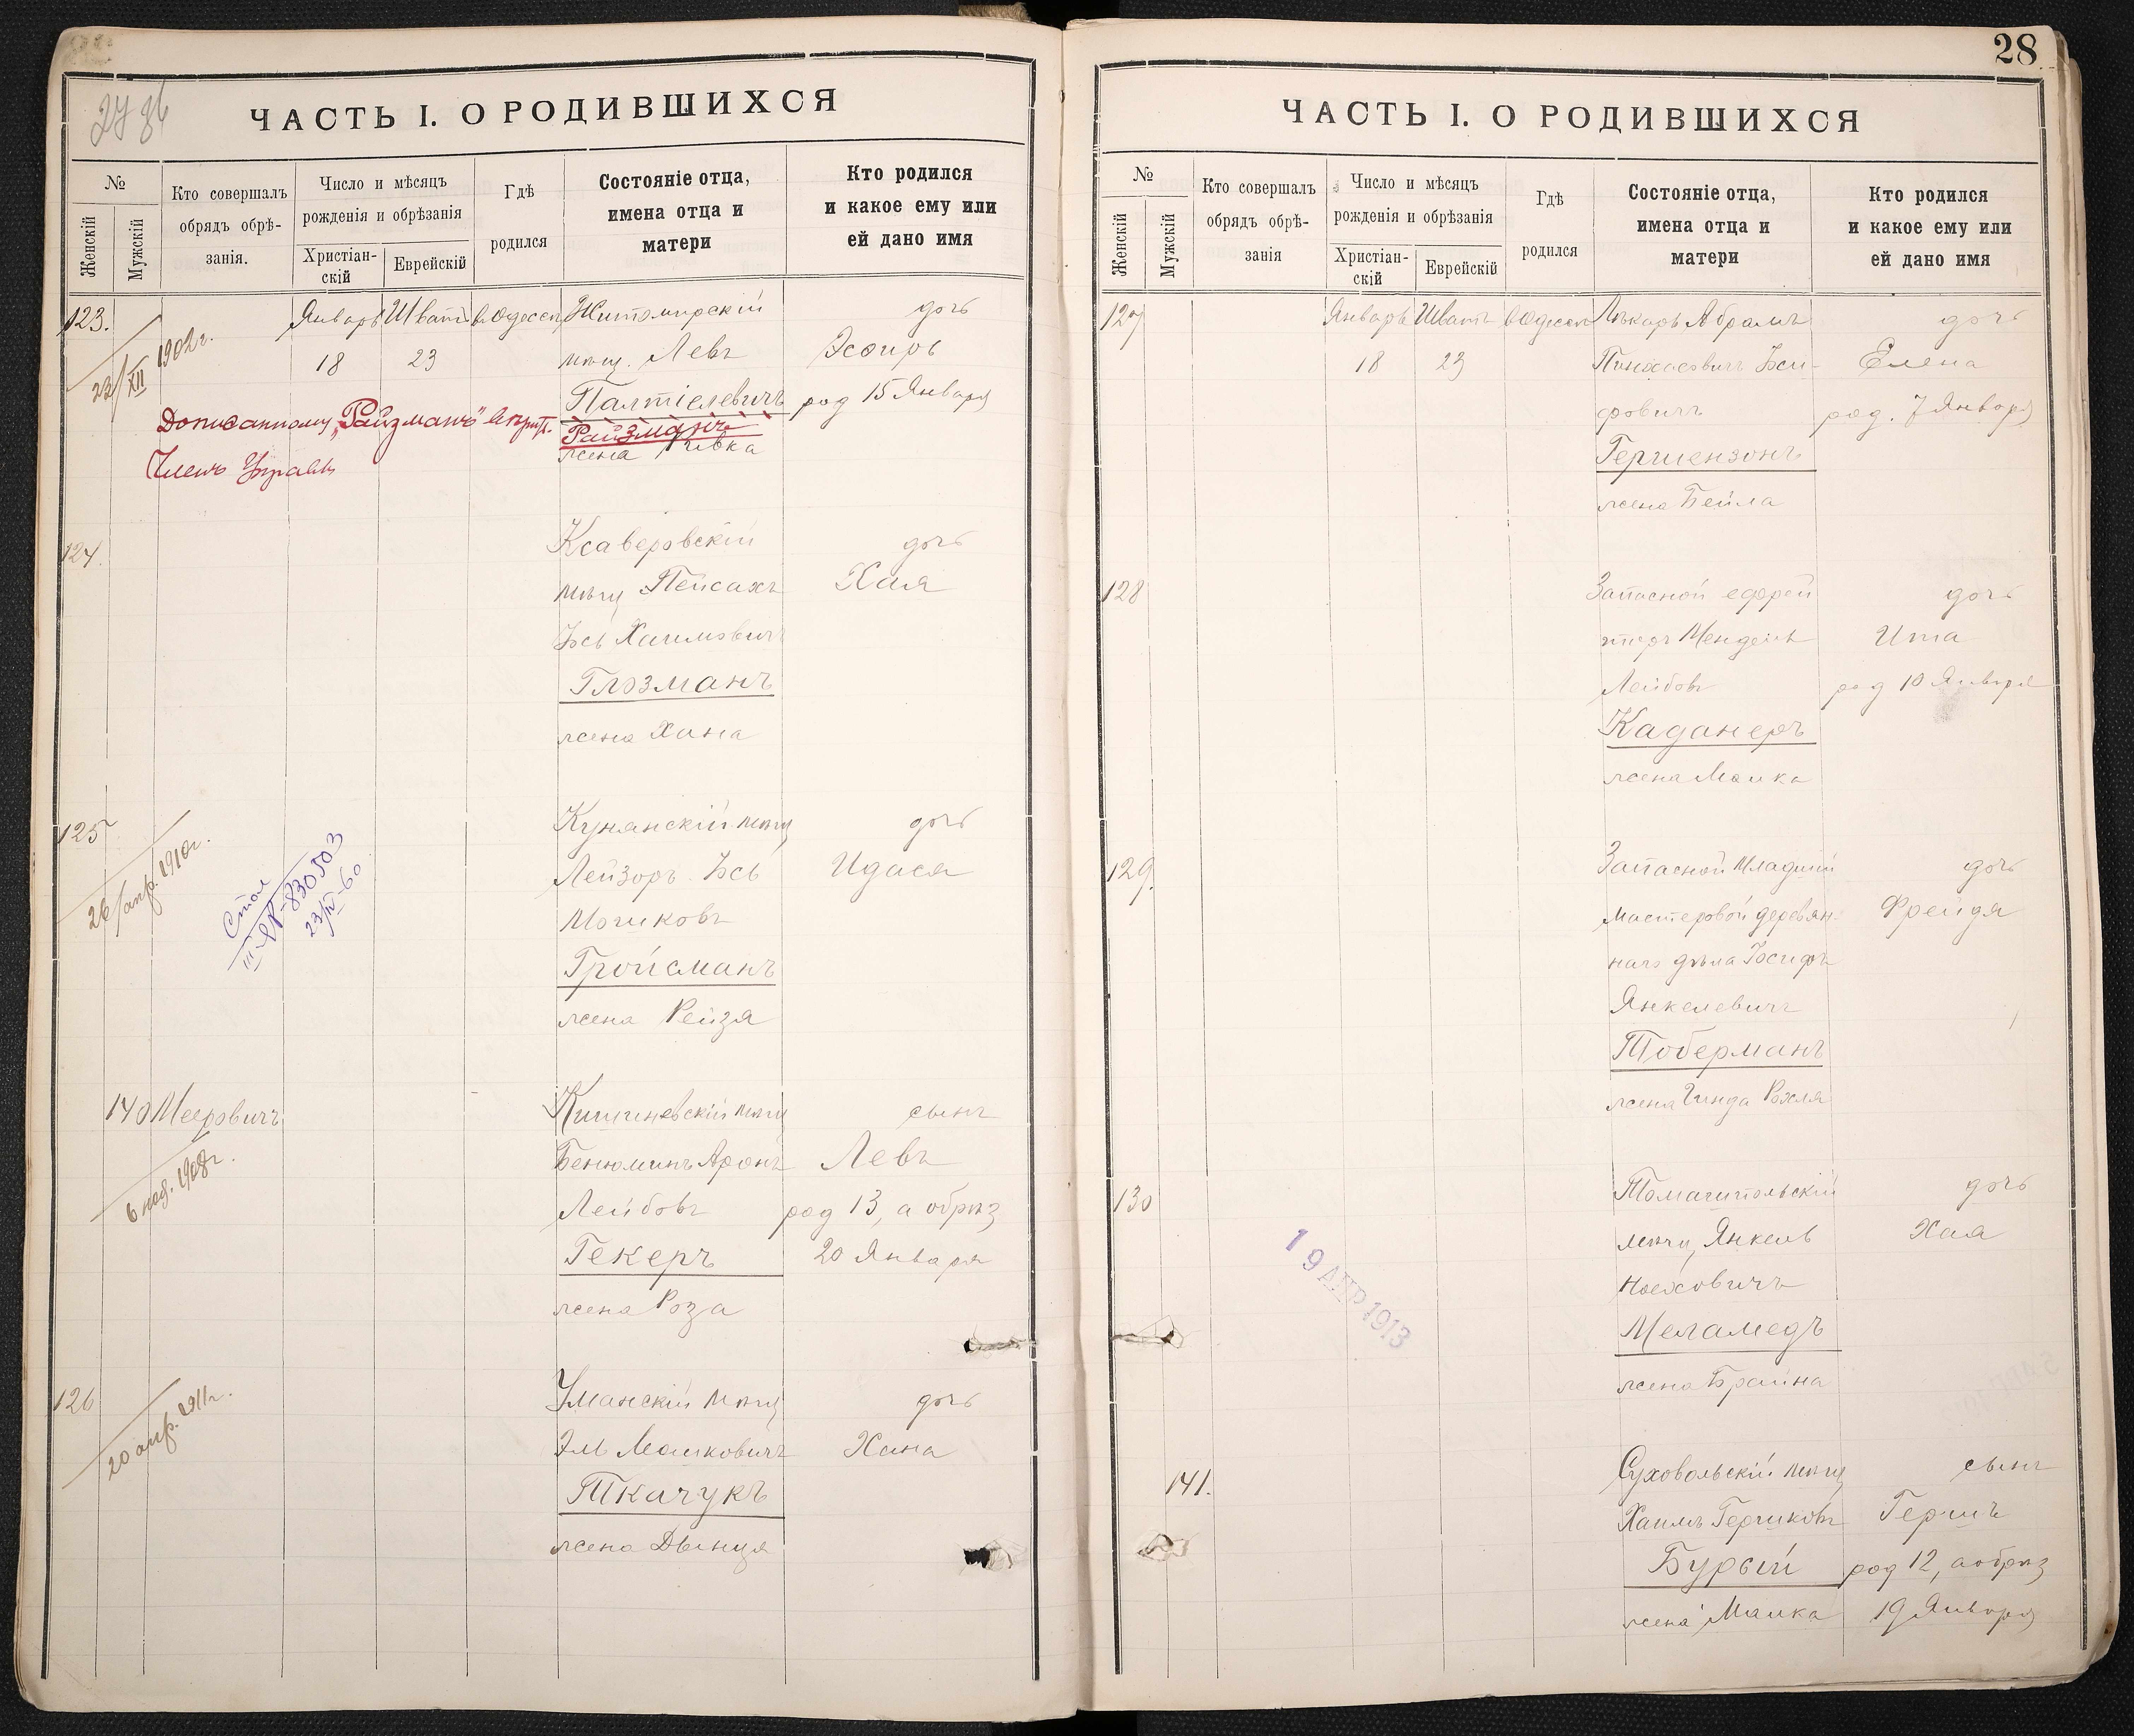 27 об
ЧАСТЬ I. О РОДИВШИХСЯ
№
Женскій
Мужскій
Кто совершалъ
обрядъ обрѣ-
занія.
Число и мѣсяцъ
рожденія и обрѣзанія
Христіан-
скій
Еврейскій
Гдѣ
родился
Состояніе отца,
имена отца и
матери
Кто родился
и какое ему или
ей дано имя
123. Январь Шватъ в Одессѣ Житомирскій дочь
23/XII 1902г. 18 23 мѣщ. Левъ Эсѳирь
Палтіелевичъ род 15 Января
Дописанному "Райзманъ" вѣрить. Райзманъ
жена Ривка
Членъ Управы
124. Ксаверовскій дочь
мѣщ Пейсахъ Хая
Іось Хаимовичъ
Глозманъ
жена Хана
125 мѣщ дочь
26/апр. 1910г.
Стол
III-ЯР-830503
23/IV-60
Лейзоръ Іось Идася
Мошковъ
Гройсманъ
жена Рейзя
140 Мееровичъ Кишиневскій мѣщ сынъ
6 ноя. 1908г.
Бенюминъ Аронъ Левъ
Лейбовъ род 13, а обрѣз
Гекеръ 20 Января
жена Роза
126 Уманскій мѣщ дочь
20 апр. 1911г.
Эль Мошковичъ Хана
Ткачукъ
жена Двинця
28
ЧАСТЬ I. О РОДИВШИХСЯ
№
Женскій
Мужскій
Кто совершалъ
обрядъ обрѣ-
занія
Число и мѣсяцъ
рожденія и обрѣзанія
Христіан-
скій
Еврейскій
Гдѣ
родился
Состояніе отца,
имена отца и
матери
Кто родился
и какое ему или
ей дано имя
127 Январь Шватъ в Одессѣ Лѣкарь Абрамъ дочь
18 23 Пинхасовичъ Іси- Елена
фовичъ род. 7 Января
Гершензонъ
жена Бейла
128 Запасной ефрей дочь
торъ Мендель Ита
Лейбовъ род 10 Января
Каданеръ
жена Малка
129. Запасной младшій дочь
мастеровой деревян- Фрейдя
наго дѣла Іосифъ
Янкелевичъ
Тоберманъ
жена Гинда Рохля
130 Томашпольскій дочь
мѣщ Янкель Хая
Ноеховичъ
Меламедъ
жена Брайна
19 АПР 1913
141. Суховольскій мѣщ сынъ
Хаимъ Гершковъ Гершъ
Бурый род 12, а обрѣз
жена Малка 19 Января